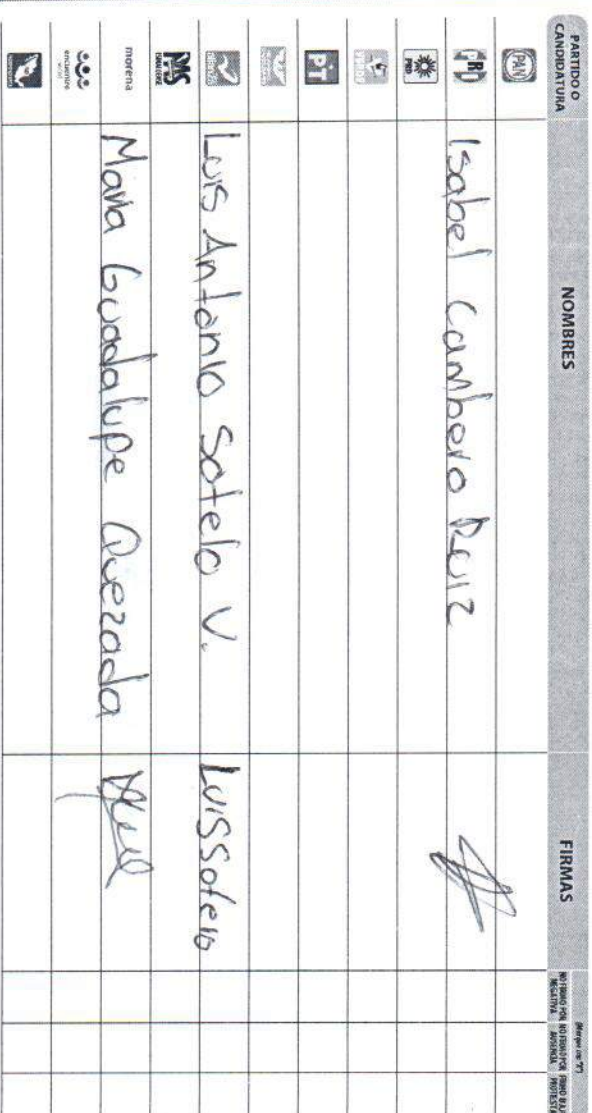 PARTIDO O CANDIDATURA NOMBRES FIRMAS (Marque con "X") NO FIRMÓ POR NEGATIVA NO FIRMÓ POR AUSENCIA FIRMÓ BAJO PROTESTA
PAN
PRI Isabel Cambero Ruiz
PRD
VERDE
PT
alianza Luis Antonio Sotelo V. Luis Sotelo
PAS SINALOENSE
morena Maria Guadalupe Quezada
encuentro social